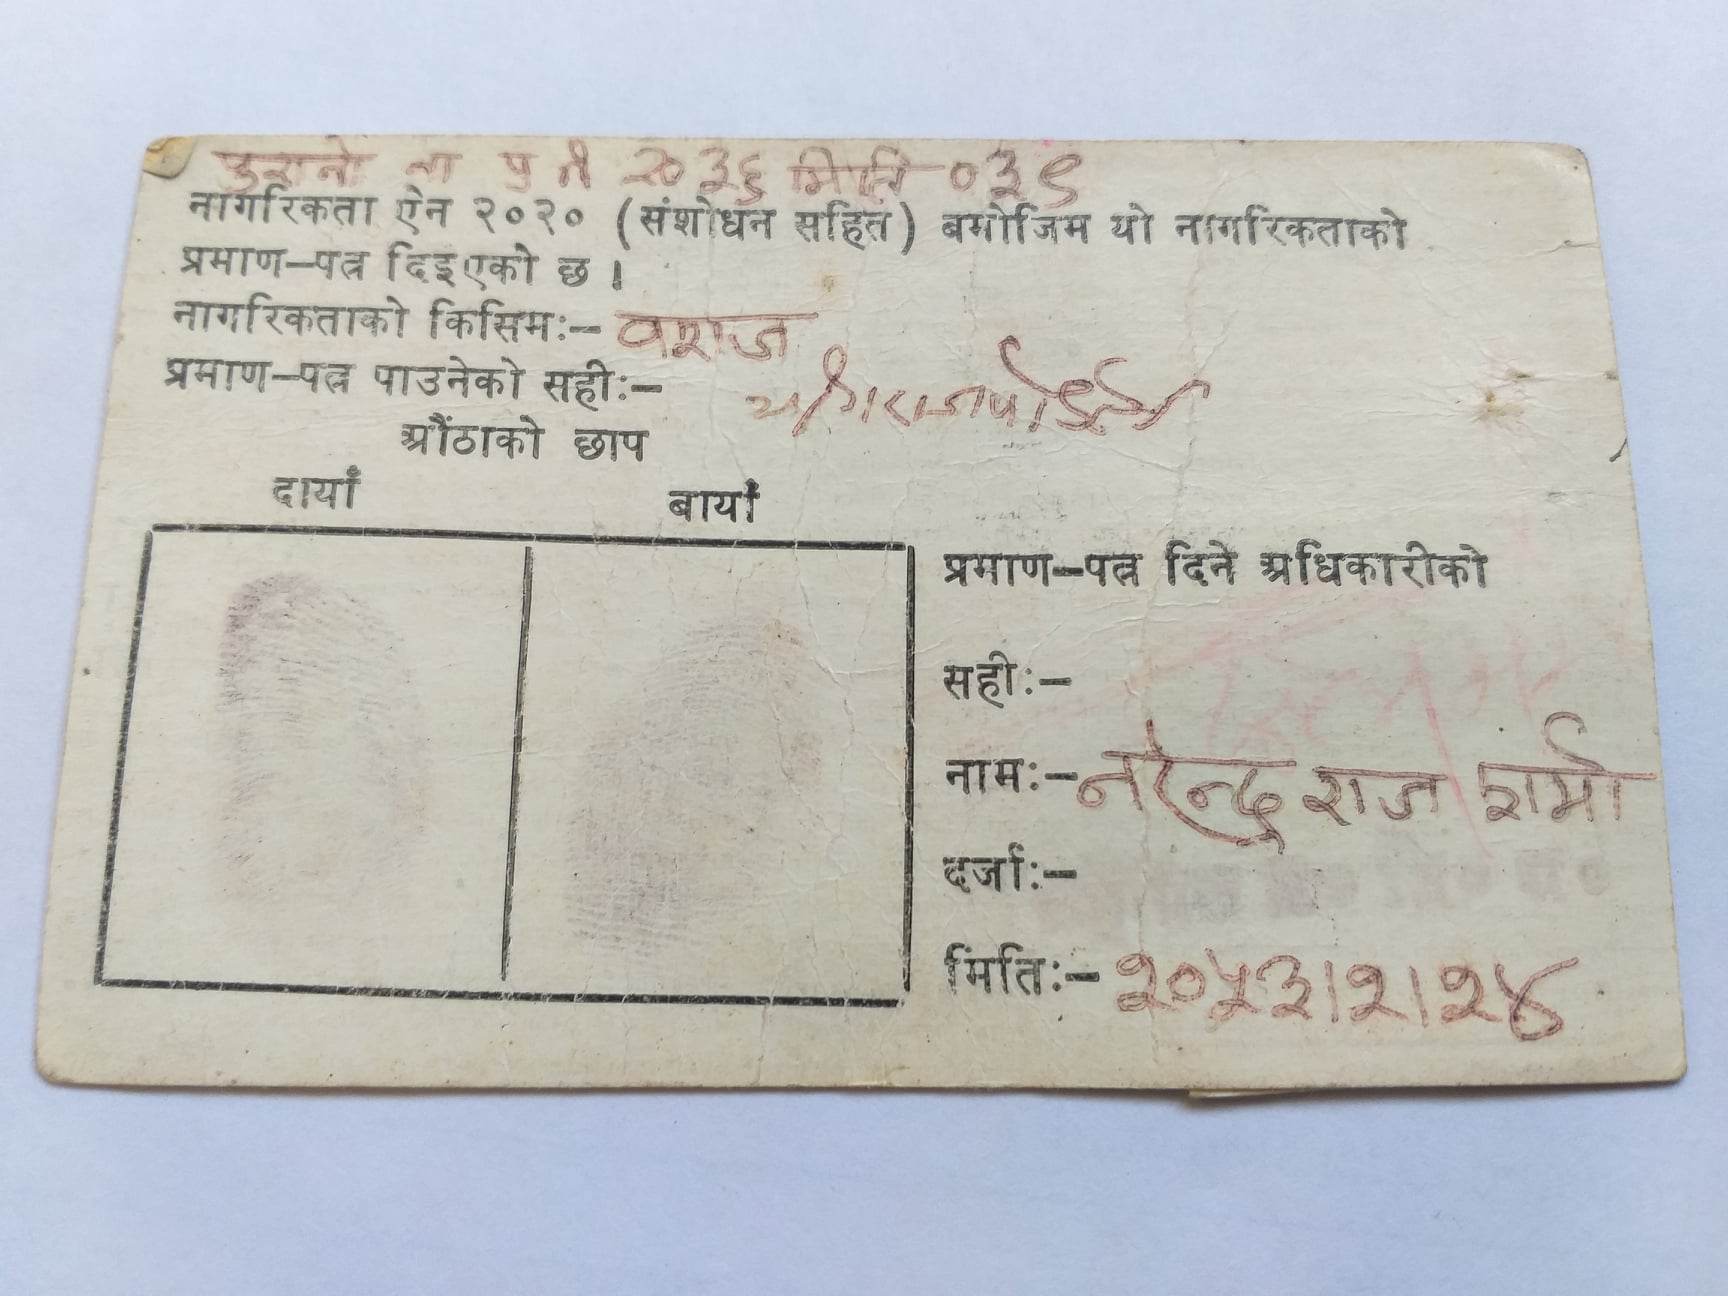 पुरानो ना प्र नं २०३६ मिति ०३९
नागरिकता ऐन २०२० (संशोधन सहित) बमोजिम यो नागरिकताको
प्रमाण–पत्र दिइएको छ ।
नागरिकताको किसिम:– वंशज
प्रमाण–पत्र पाउनेको सही:–
औंठाको छाप
दायाँ बायाँ
प्रमाण–पत्र दिने अधिकारीको
सही:–
नाम:– नरेन्द्र राज शर्मा
दर्जा:–
मिति:– २०५३।२।२४